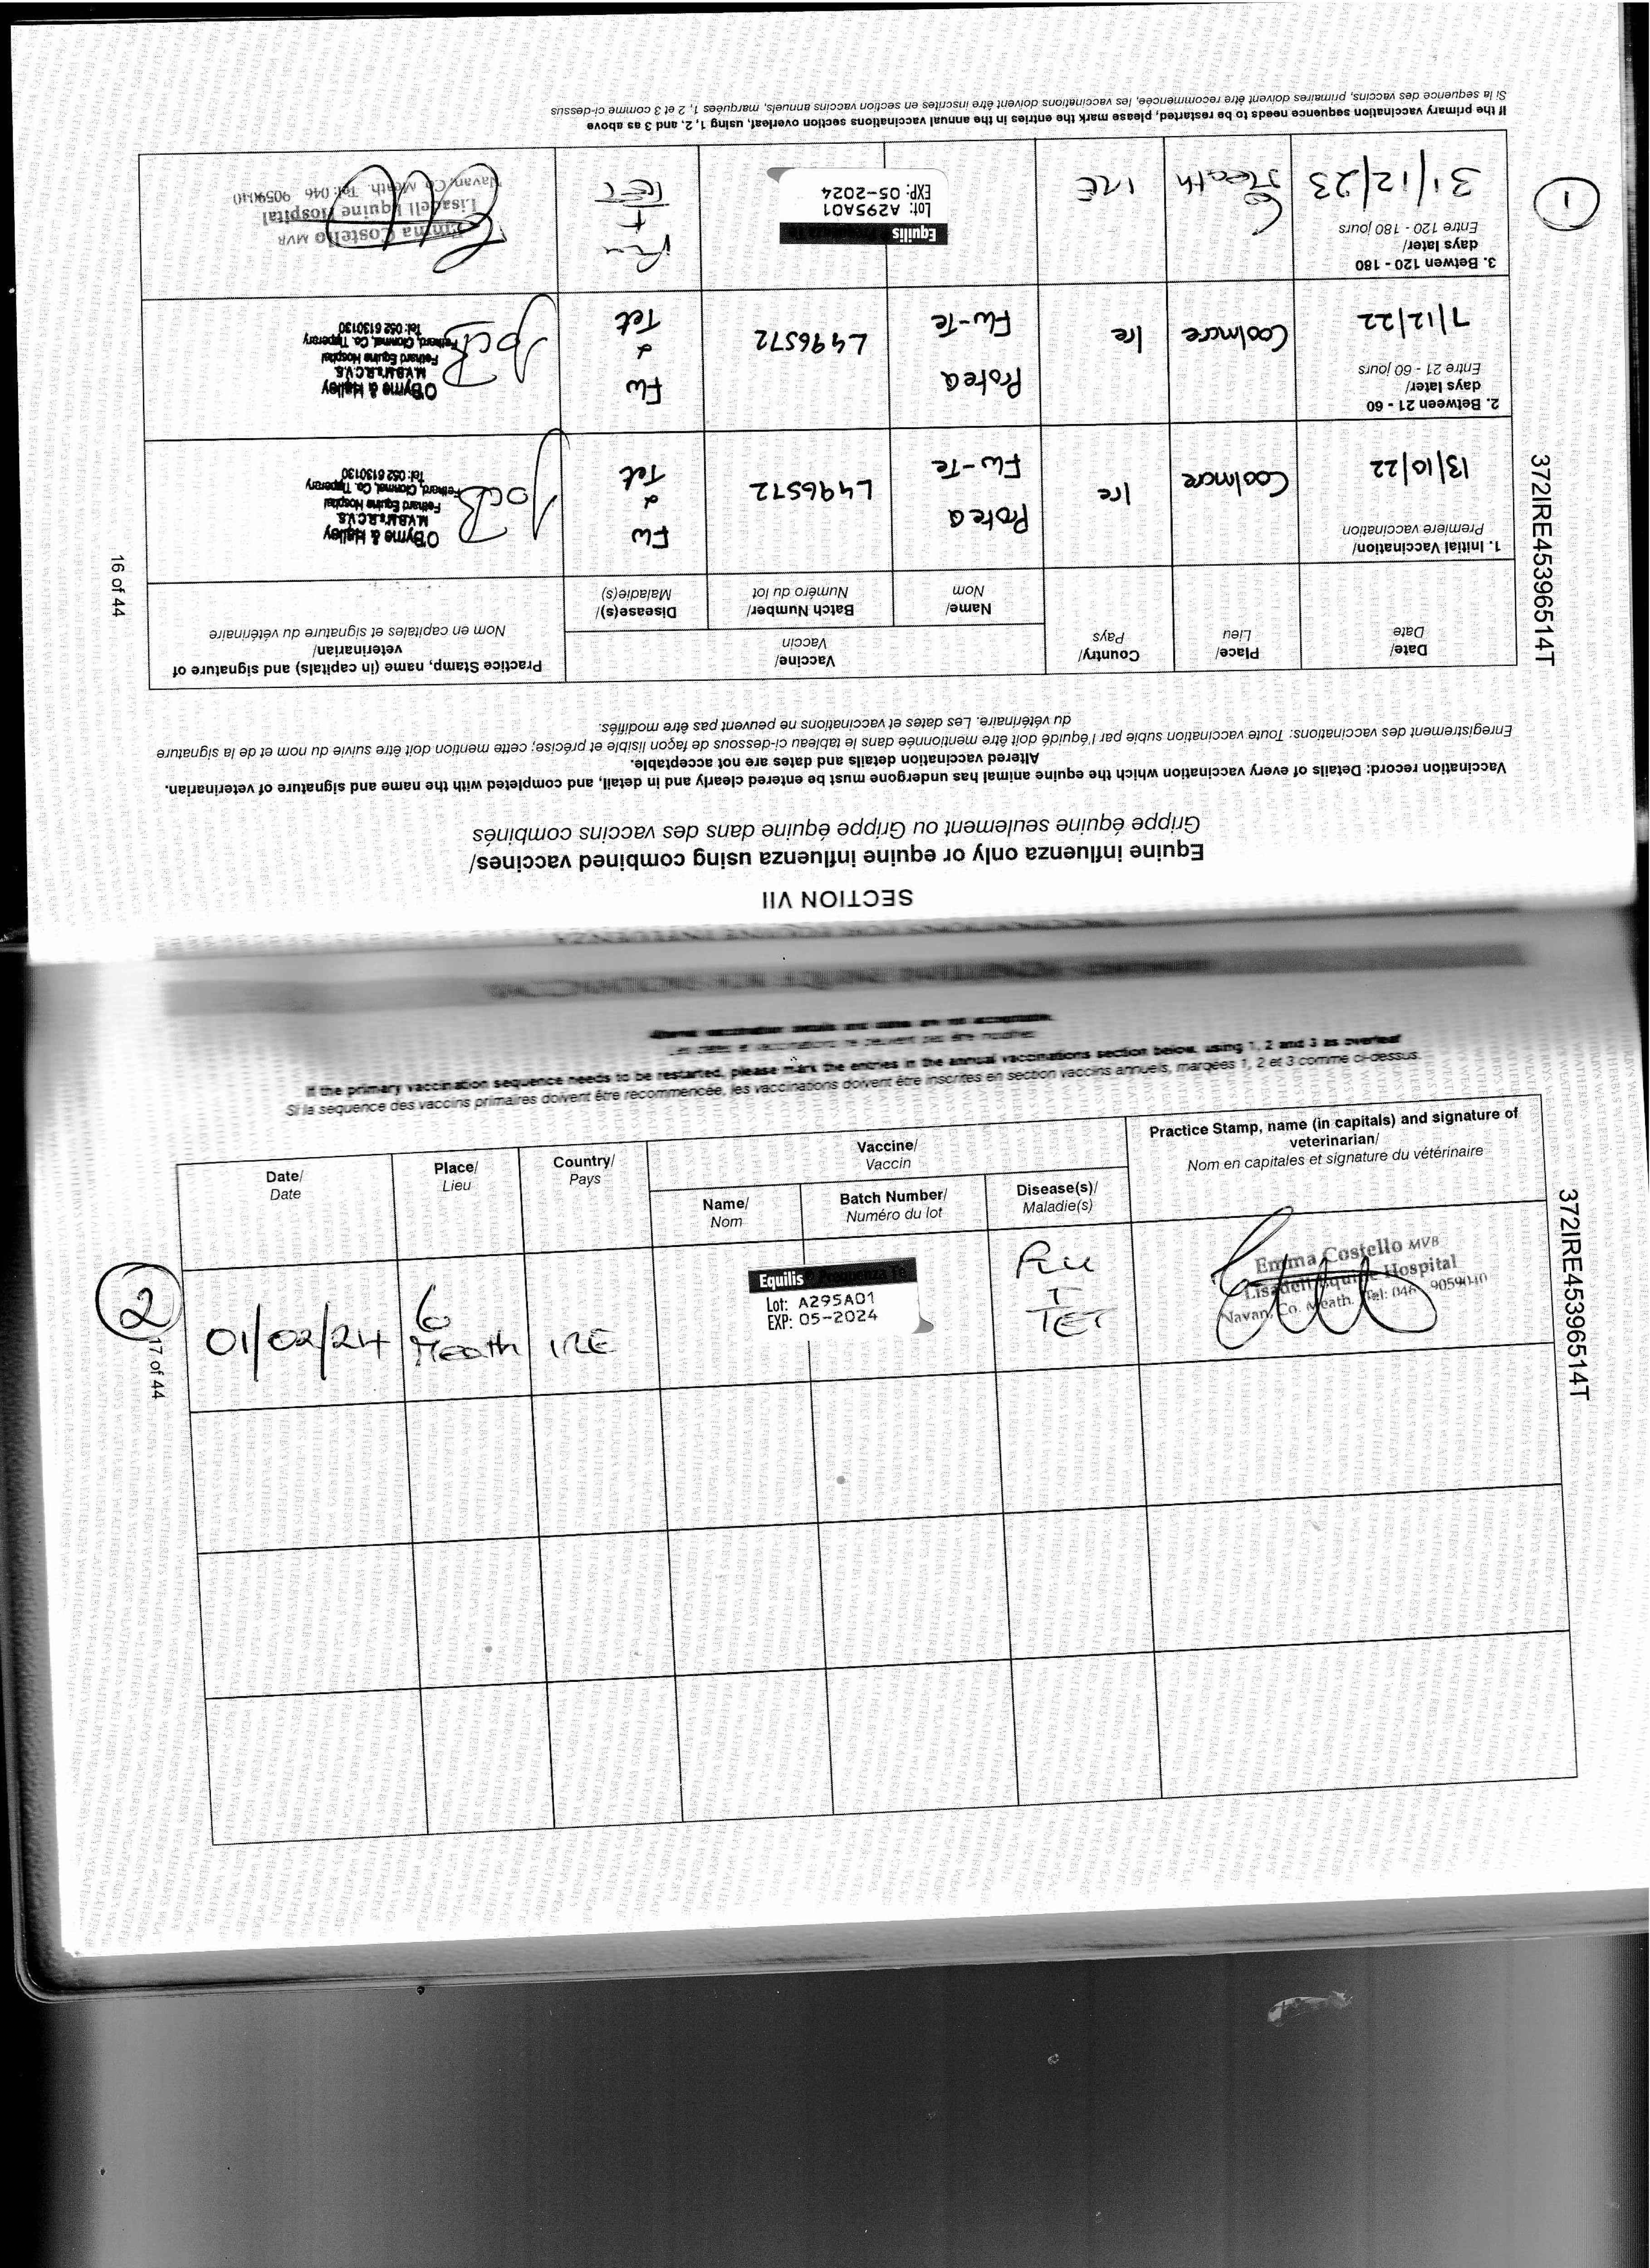 SECTION VII
Equine influenza only or equine influenza using combined vaccines/
Grippe équine seulement ou Grippe équine dans des vaccins combinés
Vaccination record: Details of every vaccination which the equine animal has undergone must be entered clearly and in detail, and completed with the name and signature of veterinarian.
Altered vaccination details and dates are not acceptable.
Enregistrement des vaccinations: Toute vaccination subie par l'équidé doit être mentionnée dans le tableau ci-dessous de façon lisible et précise; cette mention doit être suivie du nom et de la signature
du vétérinaire. Les dates et vaccinations ne peuvent pas être modifiés.
Date/
Date
Place/
Lieu
Country/
Pays
Vaccine/
Vaccin
Name/
Nom
Batch Number/
Numéro du lot
Disease(s)/
Maladie(s)
Practice Stamp, name (in capitals) and signature of
veterinarian/
Nom en capitales et signature du vétérinaire
1. Initial Vaccination/
Premiere vaccination
13/10/22
Coolmore
Ire
Proteq
Flu-Te
L496572
Flu
&
Tet
O'Byrne & Halley
M.V.B.M's.R.C.V.S.
Fethard Equine Hospital
Fethard, Clonmel, Co. Tipperary
Tel: 052 6130130
2. Between 21 - 60
days later/
Entre 21 - 60 jours
7/12/22
Coolmore
Ire
Proteq
Flu-Te
L496572
Flu
&
Tet
O'Byrne & Halley
M.V.B.M's.R.C.V.S.
Fethard Equine Hospital
Fethard, Clonmel, Co. Tipperary
Tel: 052 6130130
1
3. Betwen 120 - 180
days later/
Entre 120 - 180 jours
31/12/23
Co
Meath
IRE
Equilis
Lot: A295A01
EXP: 05-2024
Flu
+
TET
Emma Costello MVB
Lisadell Equine Hospital
Navan, Co. Meath. Tel: 046 9059040
If the primary vaccination sequence needs to be restarted, please mark the entries in the annual vaccinations section overleaf, using 1, 2, and 3 as above
Si la sequence des vaccins, primaires doivent être recommencée, les vaccinations doivent être inscrites en section vaccins annuels, marquées 1, 2 et 3 comme ci-dessus
372IRE45396514T
16 of 44
Altered vaccination details and dates are not acceptable.
Les dates et vaccinations ne peuvent pas être modifiés
If the primary vaccination sequence needs to be restarted, please mark the entries in the annual vaccinations section below, using 1, 2 and 3 as overleaf
Si la sequence des vaccins primaires doivent être recommencée, les vaccinations doivent être inscrites en section vaccins annuels, marqées 1, 2 et 3 comme ci-dessus.
Date/
Date
Place/
Lieu
Country/
Pays
Vaccine/
Vaccin
Name/
Nom
Batch Number/
Numéro du lot
Disease(s)/
Maladie(s)
Practice Stamp, name (in capitals) and signature of
veterinarian/
Nom en capitales et signature du vétérinaire
2
01/02/24
Co
Meath
IRE
Equilis Prequenza Te
Lot: A295A01
EXP: 05-2024
Flu
+
TET
Emma Costello MVB
Lisadell Equine Hospital
Navan, Co. Meath. Tel: 046 9059040
17 of 44
372IRE45396514T